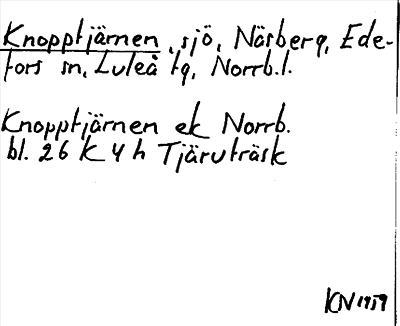 Knopptjärnen, sjö, Näsberg, Ede-
fors sn, Luleå tg, Norrb.l.
Knopptjärnen ek Norrb.
bl. 26 K 4 h Tjäruträsk
KN 1959